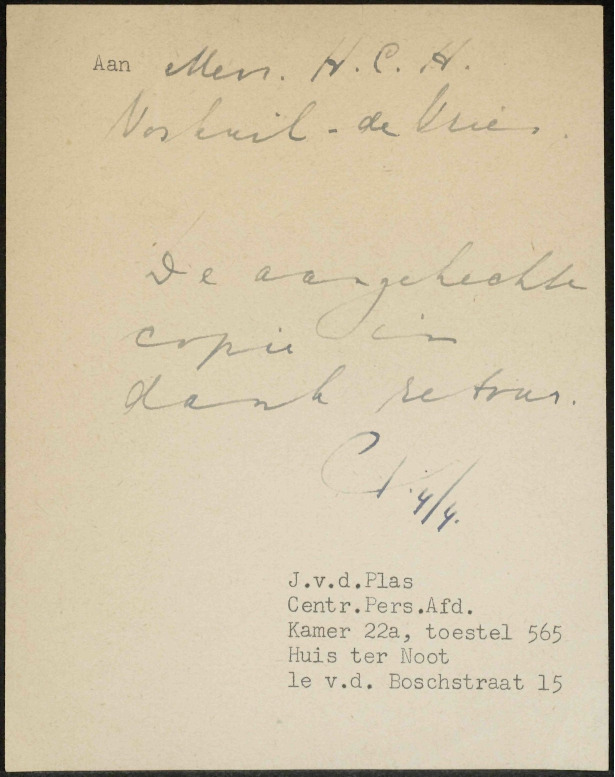 Aan Mevr. H. C. H.
Voskuil - de Vries.
De aangehechte
copie in
dank retour.
4/4.
J.v.d.Plas
Centr.Pers.Afd.
Kamer 22a, toestel 565
Huis ter Noot
1e v.d. Boschstraat 15